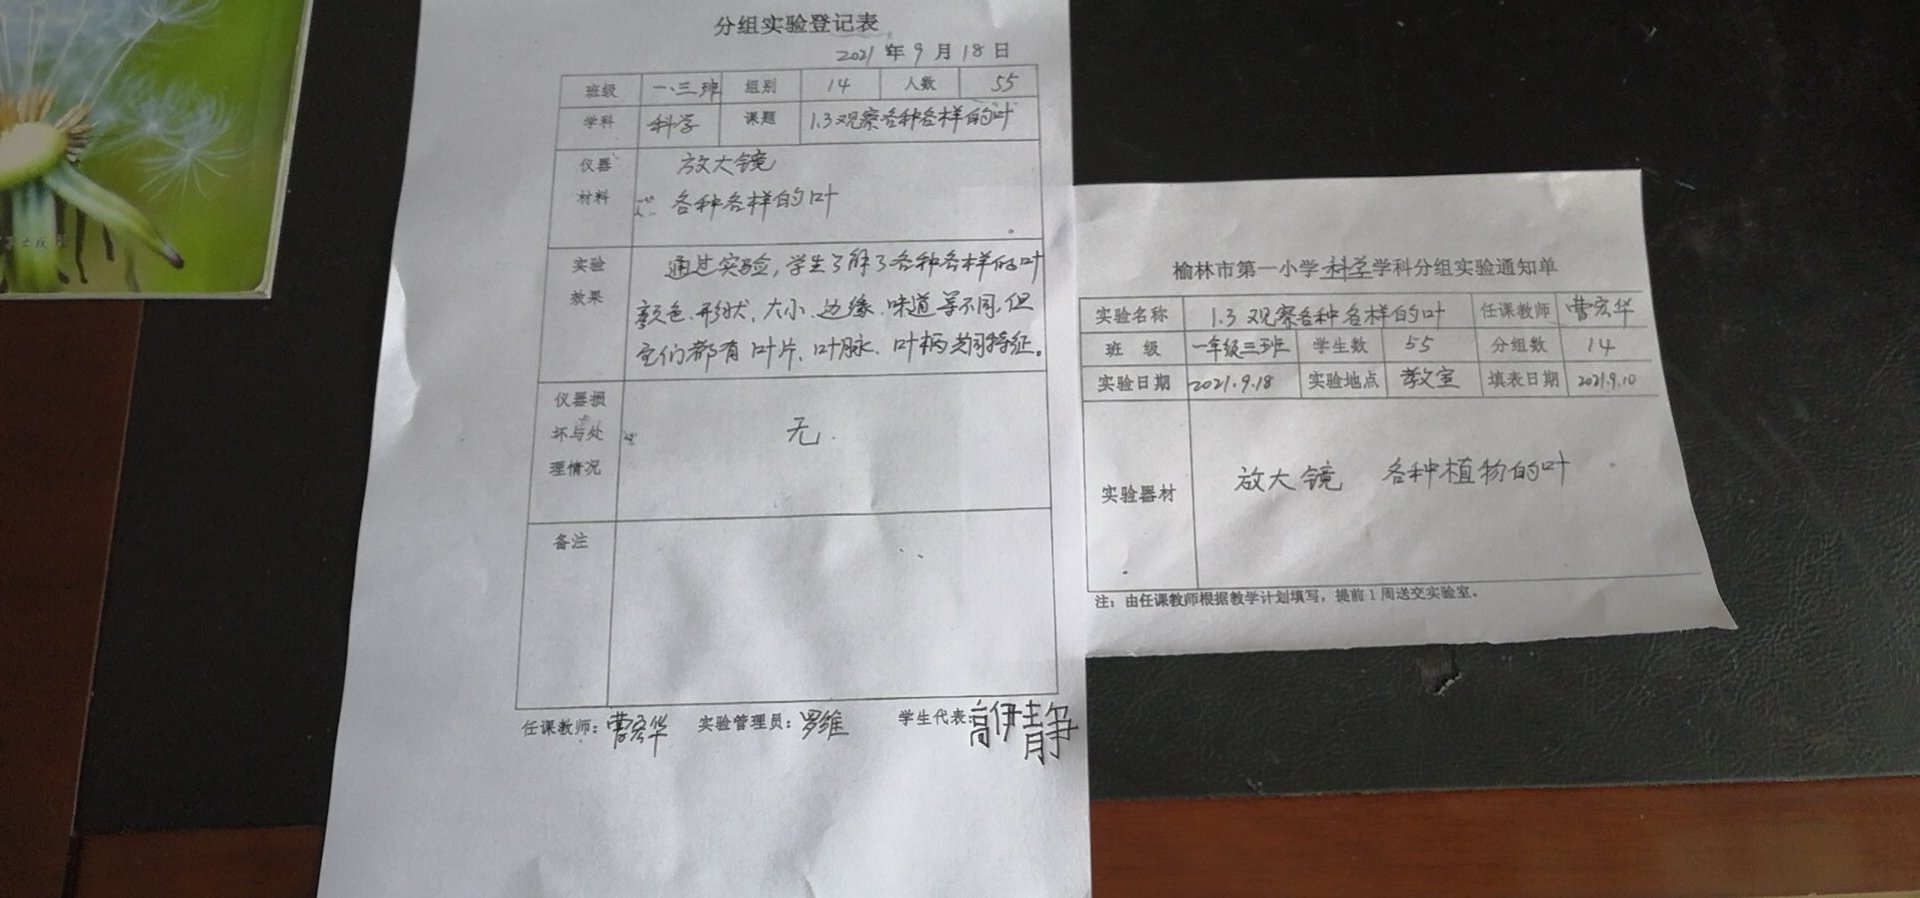 分组实验登记表
2021年9月18日
班级 一、三班 组别 14 人数 55
学科 科学 课题 1.3观察各种各样的叶
仪器 放大镜
材料 各种各样的叶
实验 通过实验,学生了解了各种各样的叶
效果 颜色、形状、大小、边缘、味道等不同,但
它们都有叶片、叶脉、叶柄共同特征。
仪器损
坏与处 无.
理情况
备注
任课教师:曹宏华 实验管理员:罗维 学生代表:高伊静
榆林市第一小学科学学科分组实验通知单
实验名称 1.3 观察各种各样的叶 任课教师 曹宏华
班 级 一年级三班 学生数 55 分组数 14
实验日期 2021.9.18 实验地点 教室 填表日期 2021.9.10
实验器材 放大镜 各种植物的叶
注:由任课教师根据教学计划填写,提前1周送交实验室。